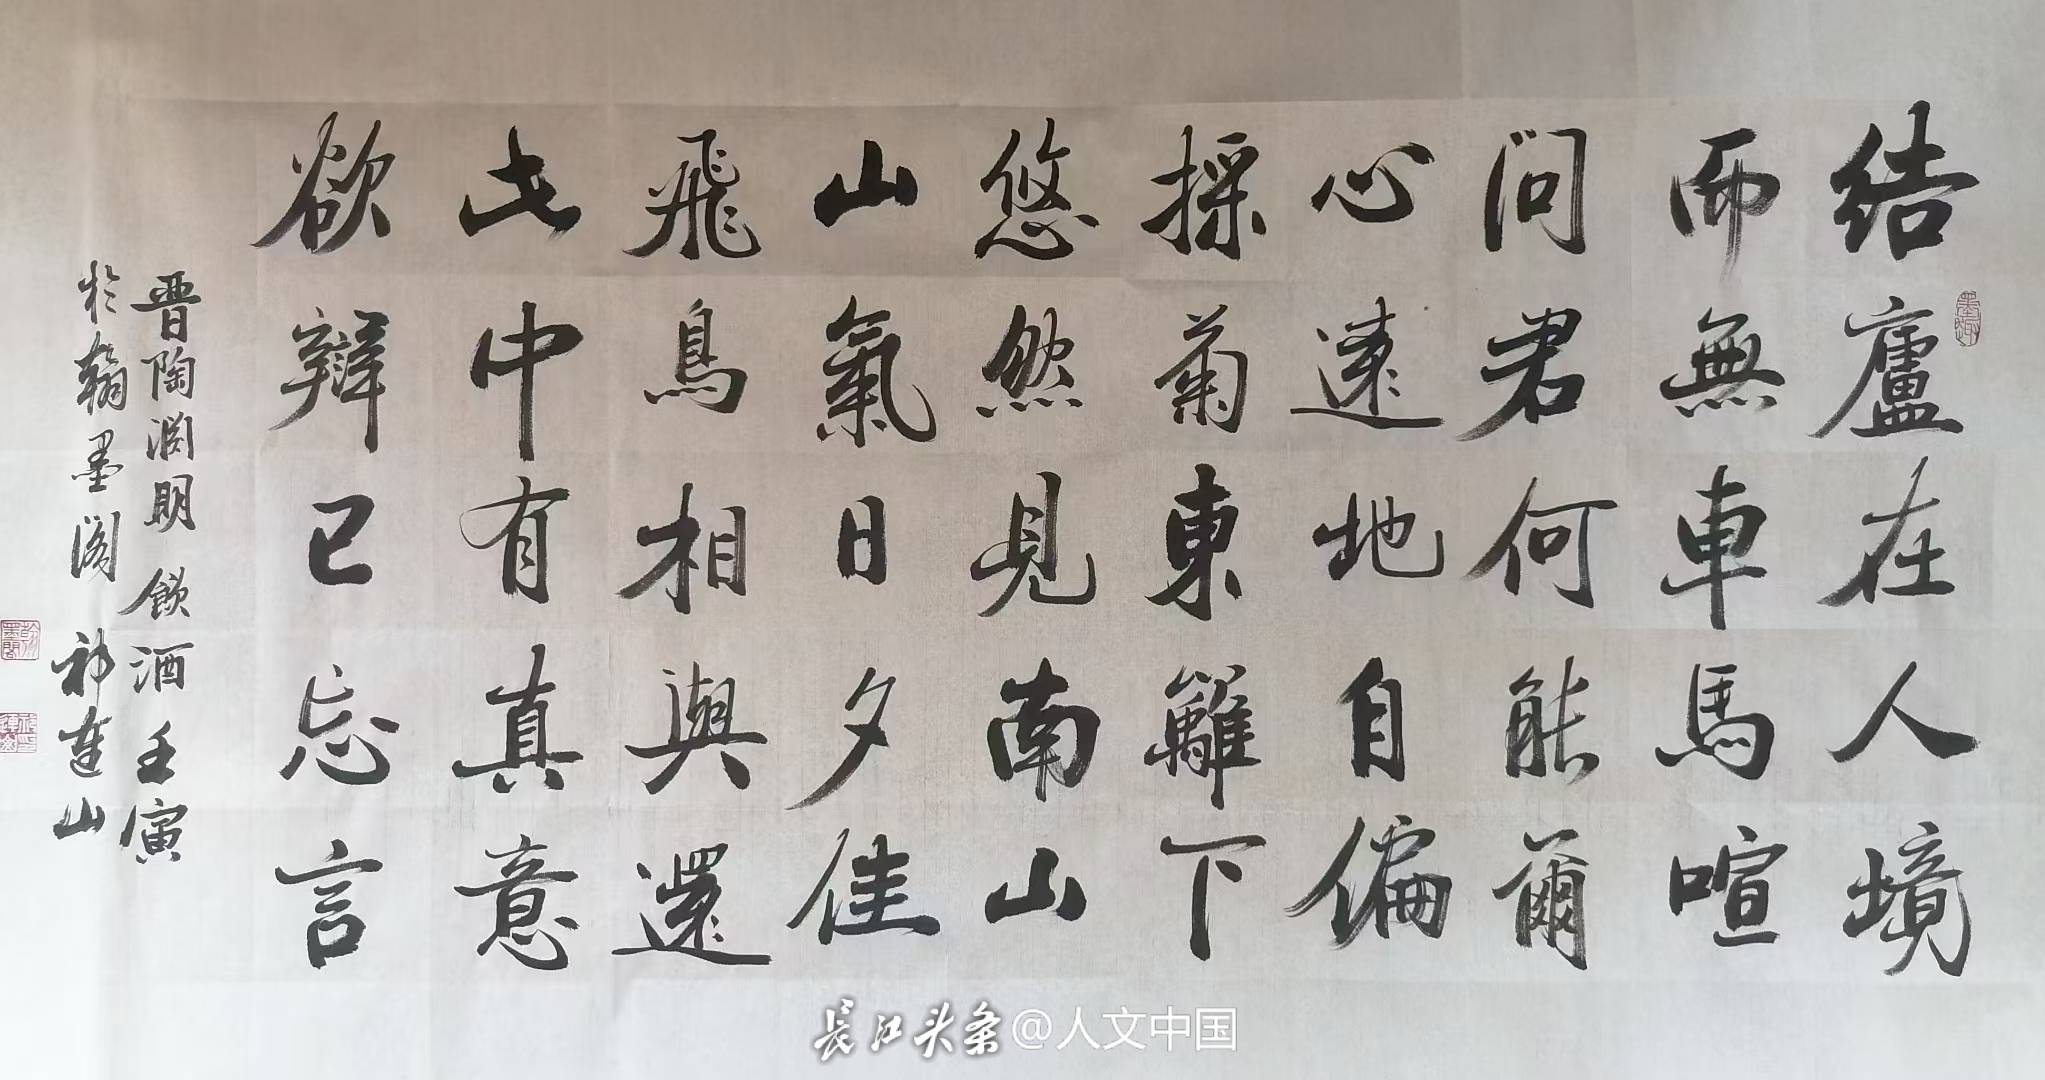 结廬在人境
而無車馬喧
问君何能爾
心遠地自偏
採菊東籬下
悠然見南山
山氣日夕佳
飛鳥相與還
此中有真意
欲辯已忘言
晋陶渊明飲酒壬寅
於翰墨阁祁連山
长江头条@人文中国